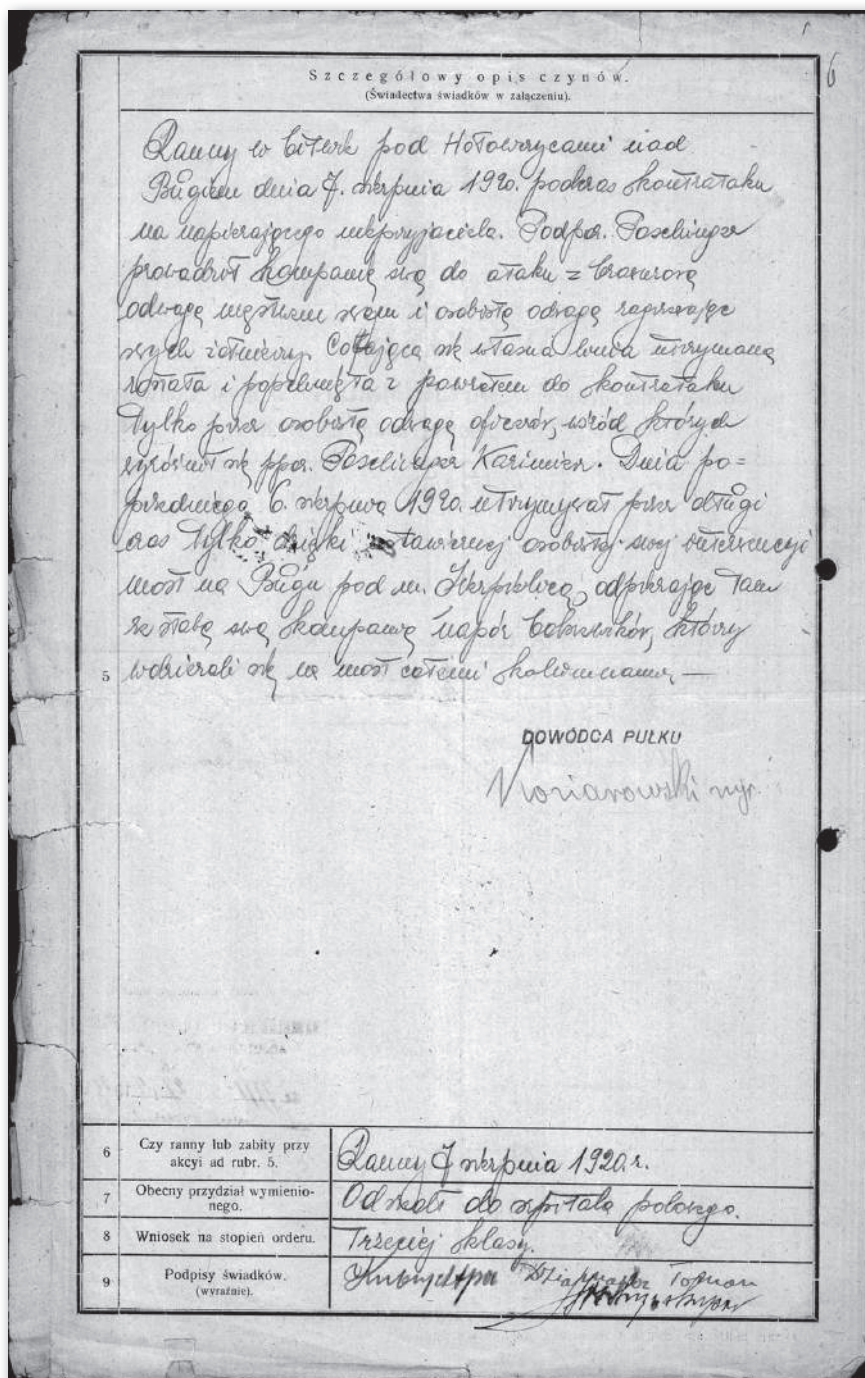 6
Szczegółowy opis czynów.
(Świadectwa świadków w załączeniu).
Ranny w bitwie pod Hołowczycami nad
Bugiem dnia 7. sierpnia 1920. podczas kontrataku
na napierającego nieprzyjaciela. Podpor. Paschinger
prowadził kompanię swą do ataku z brawurową
odwagą męstwem swem i osobistą odwagą zagrzewając
swych żołnierzy. Cofająca się własna linia utrzymaną
została i popchnięta z powrotem do kontrataku
tylko przez osobistą odwagę oficerów, wśród których
wyróżnił się ppor. Paschinger Kazimierz. Dnia po=
przedniego 6. sierpnia 1920. utrzymywał przez długi
czas tylko dzięki osobistej swej interwencji
most na Bugu pod m. odpierając tam
ze słabą swą kompanią napór bolszewików, którzy
5 wdzierali się na most całemi kolumnami, —
DOWÓDCA PUŁKU
mjr.
6 Czy ranny lub zabity przy
akcyi ad rubr. 5.
Ranny 7 sierpnia 1920. r.
7 Obecny przydział wymienio-
nego.
Odszedł do szpitala polowego.
8 Wniosek na stopień orderu.
Trzeciej klasy.
9 Podpisy świadków.
(wyraźnie).